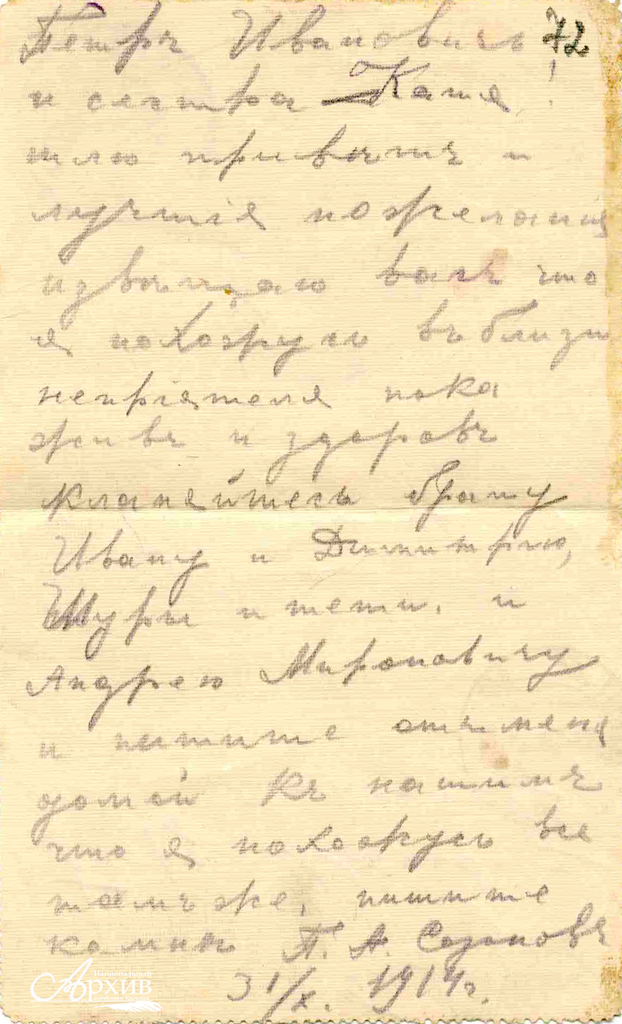 Петръ Ивановичъ 72
и сестра Катя!
шлю привѣтъ и
лучшія пожеланія
извѣщаю васъ что
я нахожусь въ близи
непріятеля пока
живъ и здоровъ
кланейтесь брату
Ивану и Димитрію,
Шуры и тети. и
Андрею Мироновичу
и пишите отъ меня
домой къ нашимъ
что я нахожусь все
тамъ же, пишите
ка мнѣ П. А. Сазоновъ
31/X. 1914 г.
Национальный
Архив